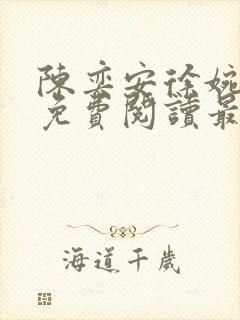 陳奕安徐婉
免費閱讀最
海道千歲